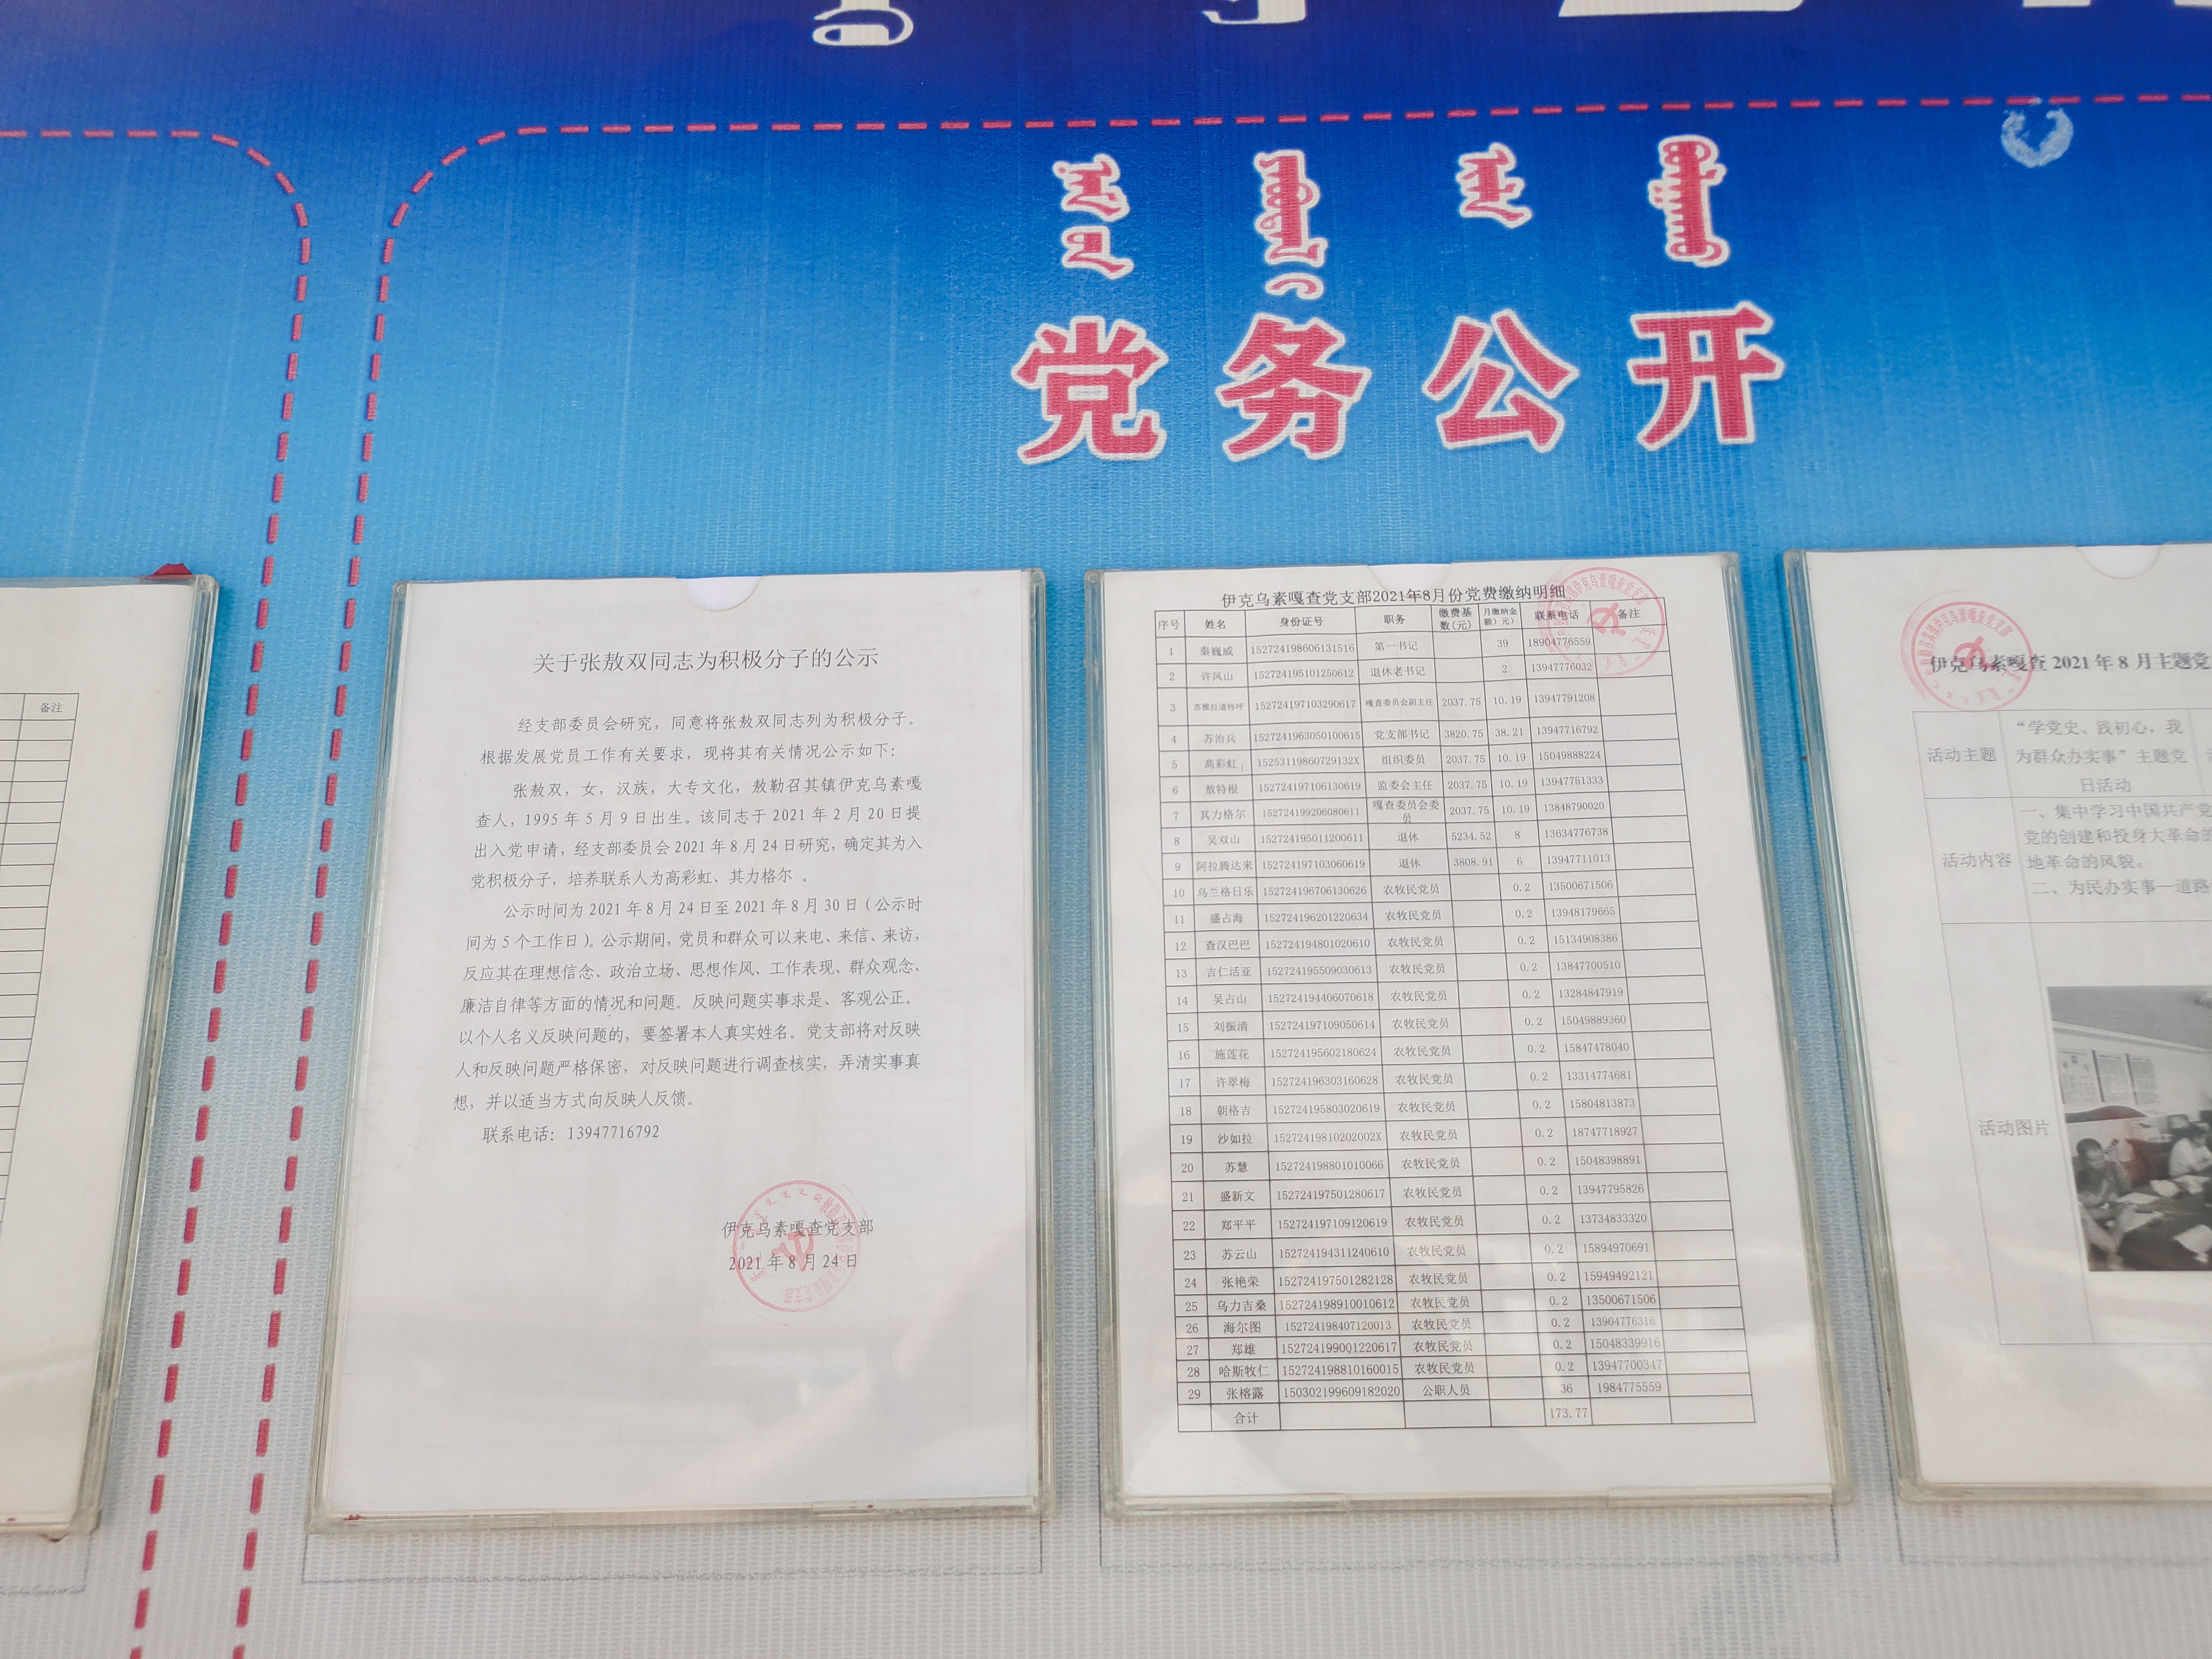 党务公开
备注
关于张敖双同志为积极分子的公示
经支部委员会研究，同意将张敖双同志列为积极分子。
根据发展党员工作有关要求，现将其有关情况公示如下：
张敖双，女，汉族，大专文化，敖勒召其镇伊克乌素嘎
查人，1995年5月9日出生。该同志于2021年2月20日提
出入党申请，经支部委员会2021年8月24日研究，确定其为入
党积极分子，培养联系人为高彩虹、其力格尔 。
公示时间为2021年8月24日至2021年8月30日（公示时
间为5个工作日）。公示期间，党员和群众可以来电、来信、来访，
反应其在理想信念、政治立场、思想作风、工作表现、群众观念、
廉洁自律等方面的情况和问题。反映问题实事求是、客观公正。
以个人名义反映问题的，要签署本人真实姓名。党支部将对反映
人和反映问题严格保密，对反映问题进行调查核实，弄清实事真
想，并以适当方式向反映人反馈。
联系电话：13947716792
伊克乌素嘎查党支部
2021年8月24日
伊克乌素嘎查党支部2021年8月份党费缴纳明细
序号 姓名 身份证号 职务 缴费基数(元) 月缴纳金额）元） 联系电话 备注
1 秦巍威 152724198606131516 第一书记 39 18904776559
2 许凤山 152724195101250612 退休老书记 2 13947776032
3 苏雅拉道特呼 152724197103290617 嘎查委员会副主任 2037.75 10.19 13947791208
4 苏治兵 1527241963050100615 党支部书记 3820.75 38.21 13947716792
5 高彩虹 15253119860729132X 组织委员 2037.75 10.19 15049888224
6 敖特根 152724197106130619 监委会主任 2037.75 10.19 13947751333
7 其力格尔 152724199206080611 嘎查委员会委员 2037.75 10.19 13848790020
8 吴双山 152724195011200611 退休 5234.52 8 13634776738
9 阿拉腾达来 152724197103060619 退休 3808.91 6 13947711013
10 乌兰格日乐 152724196706130626 农牧民党员 0.2 13500671506
11 盛占海 152724196201220634 农牧民党员 0.2 13948179665
12 查汉巴巴 152724194801020610 农牧民党员 0.2 15134908386
13 吉仁活亚 152724195509030613 农牧民党员 0.2 13847700510
14 吴占山 152724194406070618 农牧民党员 0.2 13284847919
15 刘振清 152724197109050614 农牧民党员 0.2 15049889360
16 施莲花 152724195602180624 农牧民党员 0.2 15847478040
17 许翠梅 152724196303160628 农牧民党员 0.2 13314774681
18 朝格吉 152724195803020619 农牧民党员 0.2 15804813873
19 沙如拉 15272419810202002X 农牧民党员 0.2 18747718927
20 苏慧 152724198801010066 农牧民党员 0.2 15048398891
21 盛新文 152724197501280617 农牧民党员 0.2 13947795826
22 郑平平 152724197109120619 农牧民党员 0.2 13734833320
23 苏云山 152724194311240610 农牧民党员 0.2 15894970691
24 张艳荣 152724197501282128 农牧民党员 0.2 15949492121
25 乌力吉桑 152724198910010612 农牧民党员 0.2 13500671506
26 海尔图 152724198407120013 农牧民党员 0.2 13904776316
27 郑雄 152724199001220617 农牧民党员 0.2 15048339916
28 哈斯牧仁 152724198810160015 农牧民党员 0.2 13947700347
29 张榕露 150302199609182020 公职人员 36 1984775559
合计 173.77
伊克乌素嘎查2021年8月主题党
活动主题
“学党史、践初心，我
为群众办实事”主题党
日活动
活动内容
一、集中学习中国共产党
党的创建和投身大革命的
地革命的风貌。
二、为民办实事—道路
活动图片